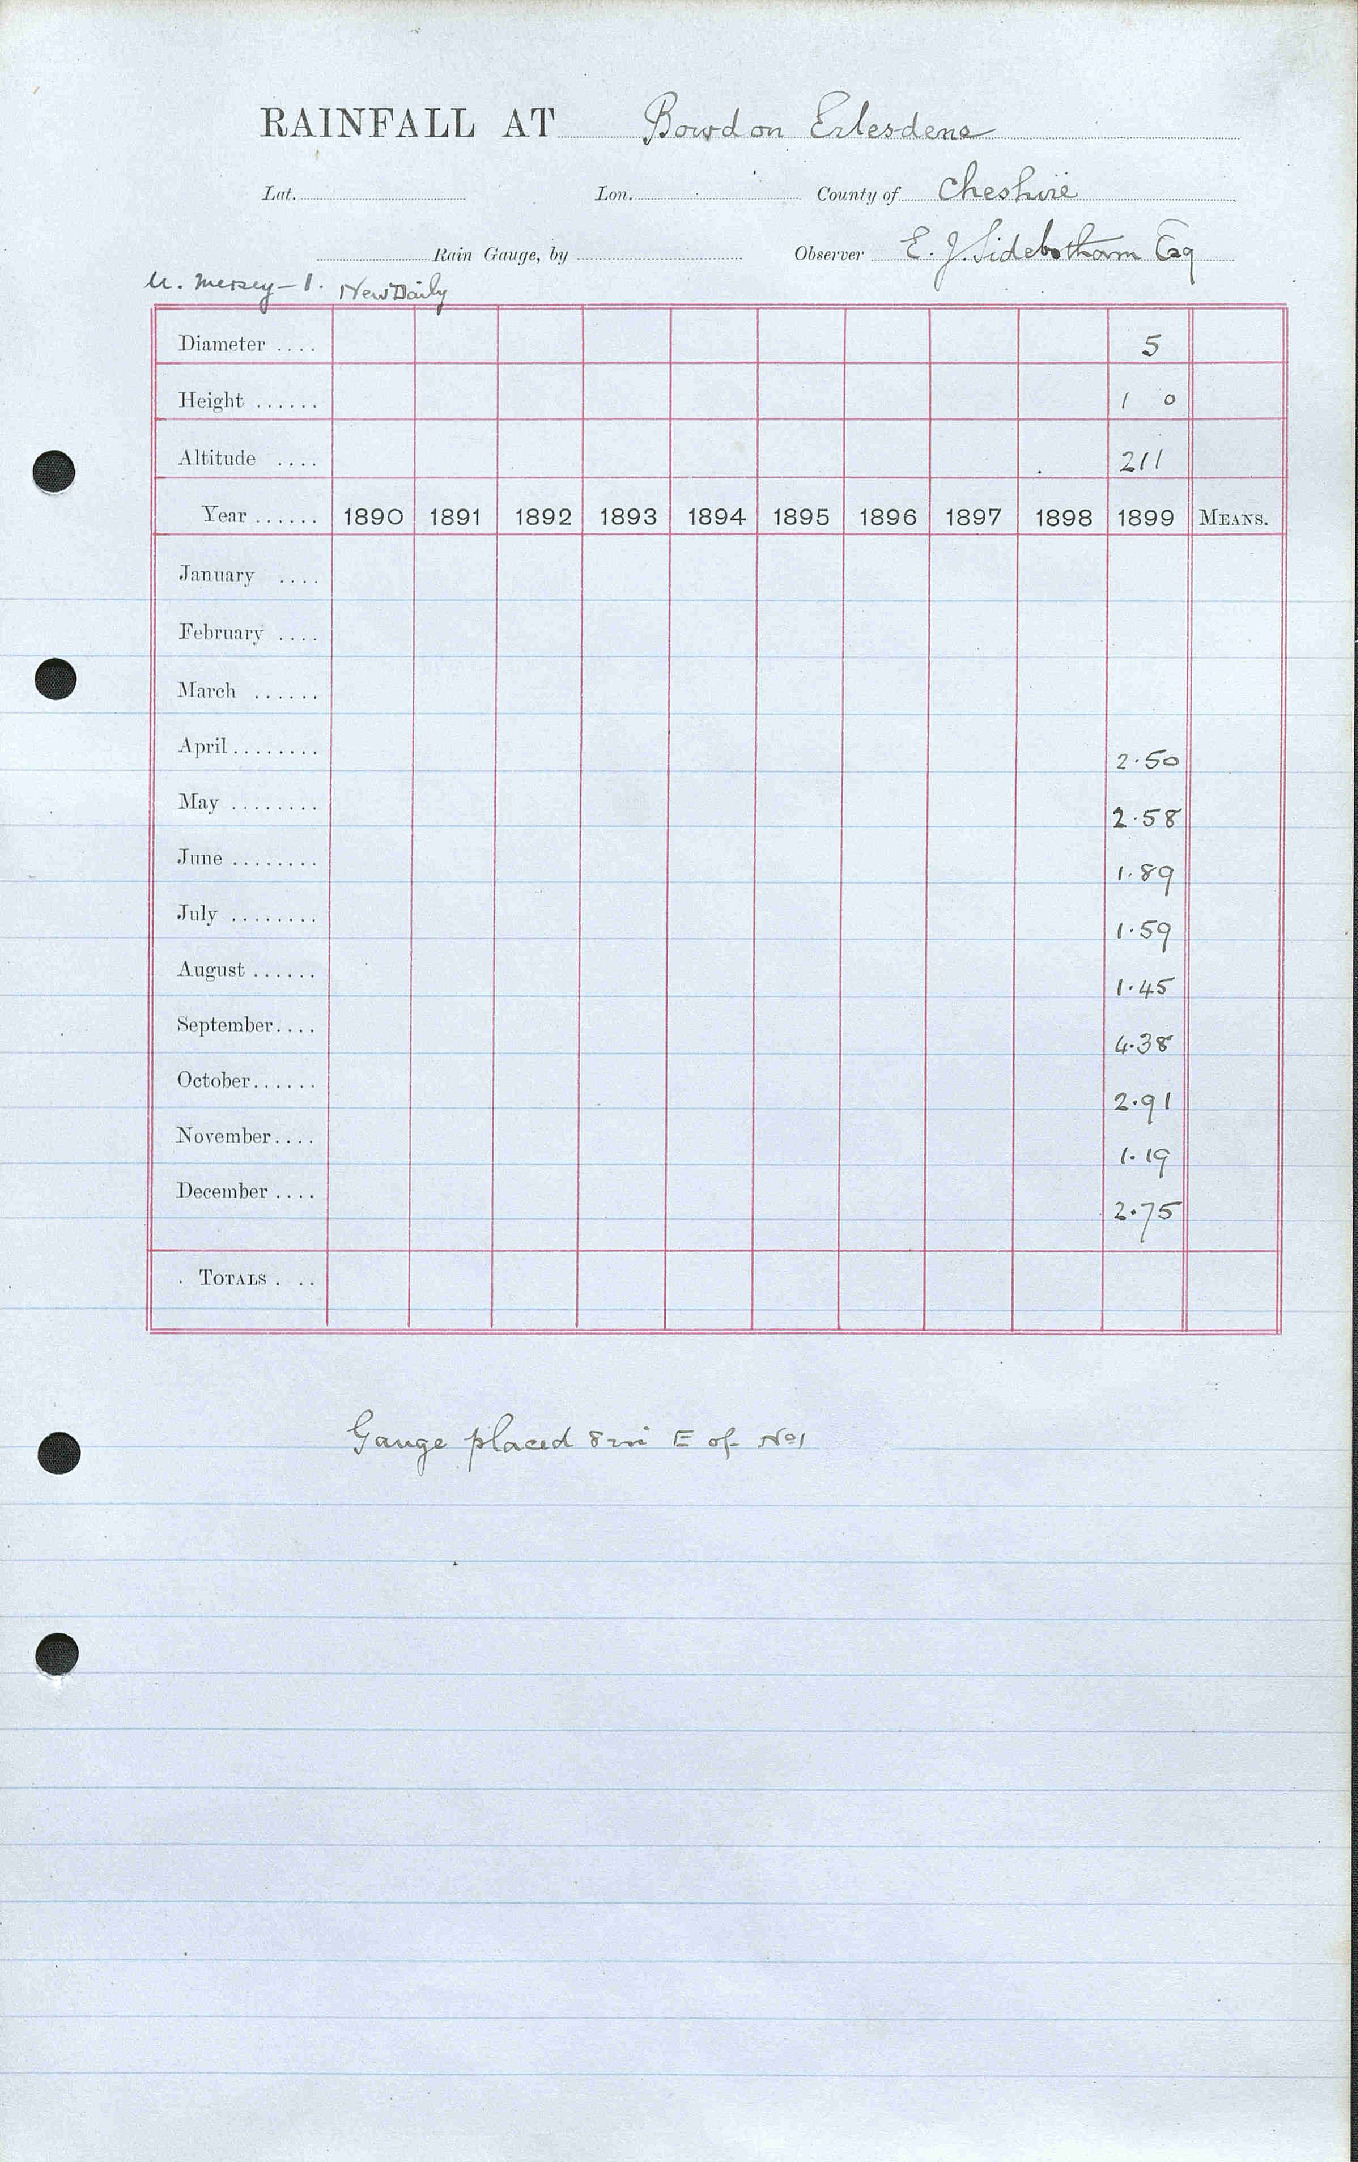 RAINFALL AT Bowdon Erlesdene
Lat. Lon. County of Cheshire
Rain Gauge, by Observer E. J. Sidebotham Esq
U. Mersey - 1. New Daily
Diameter .... 5
Height ...... 1 0
Altitude .... 211
Year ...... 1890 1891 1892 1893 1894 1895 1896 1897 1898 1899 MEANS.
January ....
February ....
March ......
April ........ 2.50
May ........ 2.58
June ........ 1.89
July ........ 1.59
August ...... 1.45
September.... 4.38
October...... 2.91
November.... 1.19
December .... 2.75
TOTALS . ..
Gauge placed 8 in E of No 1